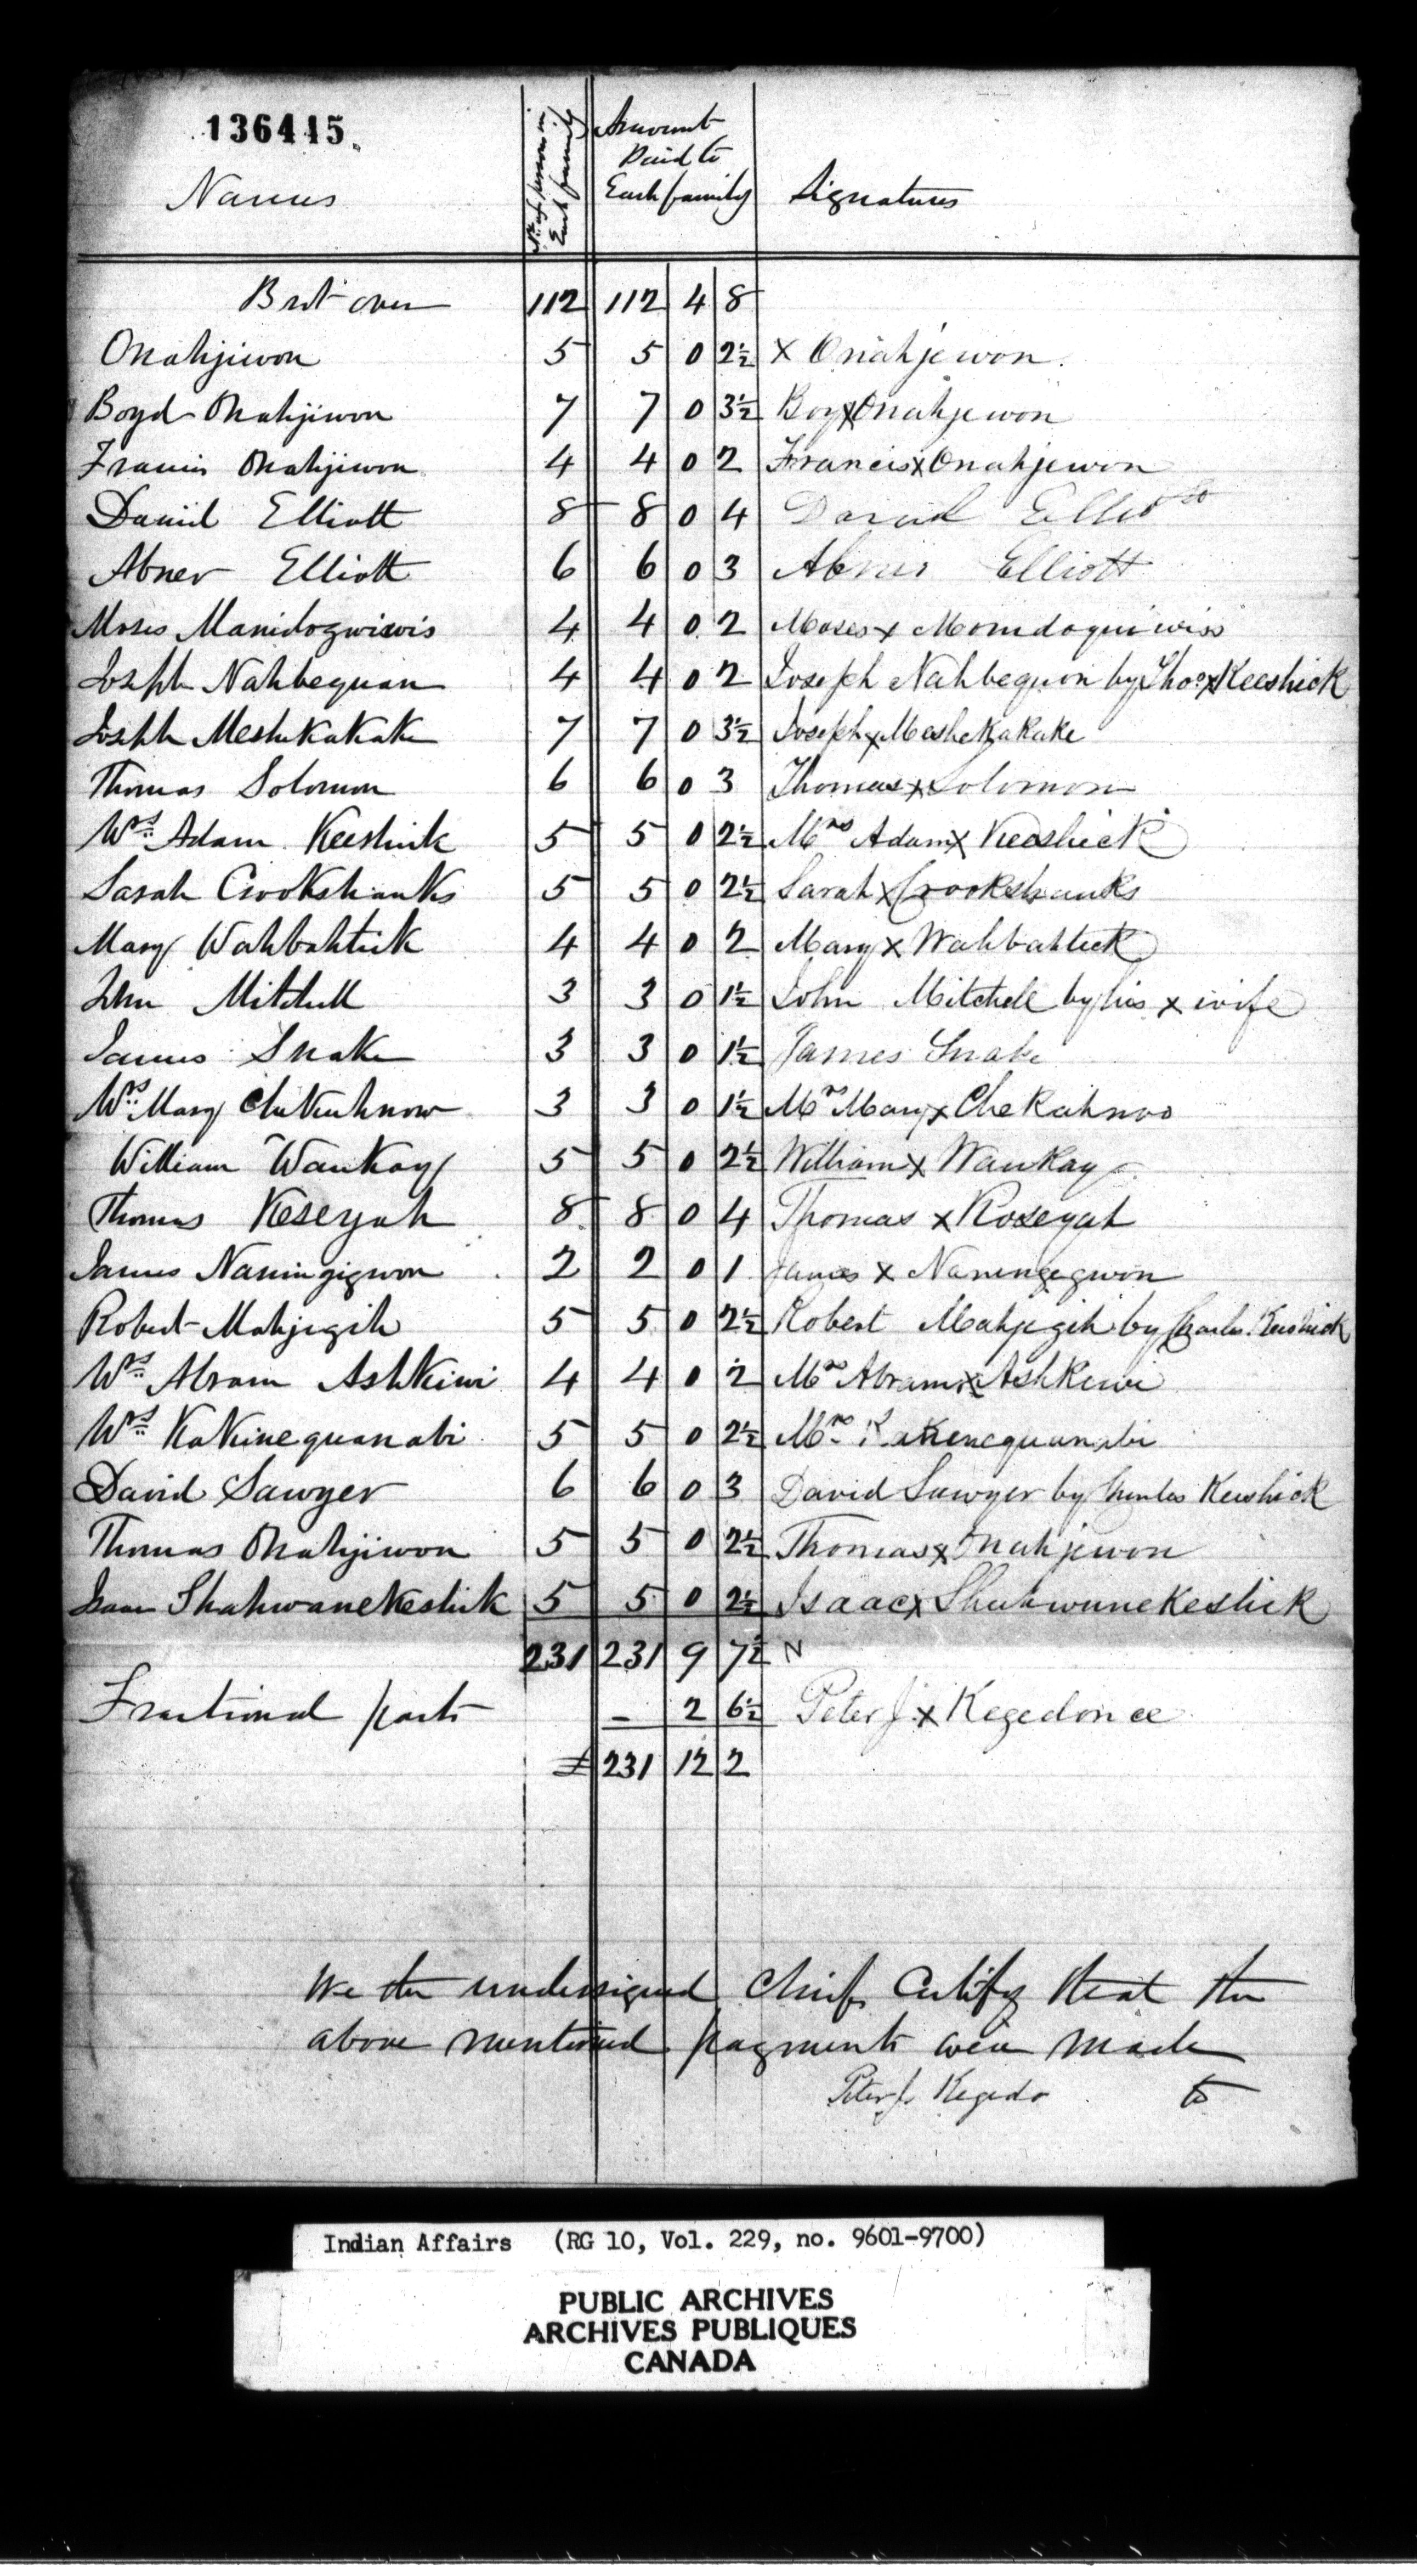 136415
Names No. of persons in Each family Amount Paid to Each family Signatures
Brot over 112 112 4 8
Onahjiwon 5 5 0 2½ x Onahjewon
Boyd Onahjiwon 7 7 0 3½ Boy x Onahjewon
Francis Onahjiwon 4 4 0 2 Francis x Onahjewon
David Elliott 8 8 0 4 David Elliott
Abner Elliott 6 6 0 3 Abner Elliott
Moses Manidogwiwis 4 4 0 2 Moses x Monidoquiwiss
Joseph Nahbequan 4 4 0 2 Joseph Nahbequon by Thos x Keeshick
Joseph Meshekakake 7 7 0 3½ Joseph x Meshekakake
Thomas Solomon 6 6 0 3 Thomas x Solomon
Wrs Adam Keeshick 5 5 0 2½ Mrs Adam x Keeshick
Sarah Crookshanks 5 5 0 2½ Sarah x Crookshanks
Mary Wahbahtick 4 4 0 2 Mary x Wahbahteck
John Mitchell 3 3 0 1½ John Mitchell by his x wife
James Snake 3 3 0 1½ James Snake
Wrs Mary Chekuhnow 3 3 0 1½ Mrs Mary x Chekahnoo
William Waukay 5 5 0 2½ William x Waukay
Thomas Keseyah 8 8 0 4 Thomas x Koseyah
James Naningigwon 2 2 0 1 James x Naningegwon
Robert Mahjigih 5 5 0 2½ Robert Mahjegih by Charles Keeshick
Wrs Abram Ashkiwi 4 4 0 2 Mrs Abram x Ashkewi
Wrs Kakinequanabi 5 5 0 2½ Mrs Kakenequanabi
David Sawyer 6 6 0 3 David Sawyer by Charles Keeshick
Thomas Onahjiwon 5 5 0 2½ Thomas x Onahjewon
Isaac Shahwanekeshik 5 5 0 2½ Isaac x Shahwunekeshek
231 231 9 7½ N
Fractional parts - 2 6½ Peter J. x Kegedonce
£ 231 12 2
We the undersigned Chiefs Certify that the
above mentioned payments were made
Peter J. Kegedo to
Indian Affairs (RG 10, Vol. 229, no. 9601-9700)
PUBLIC ARCHIVES
ARCHIVES PUBLIQUES
CANADA